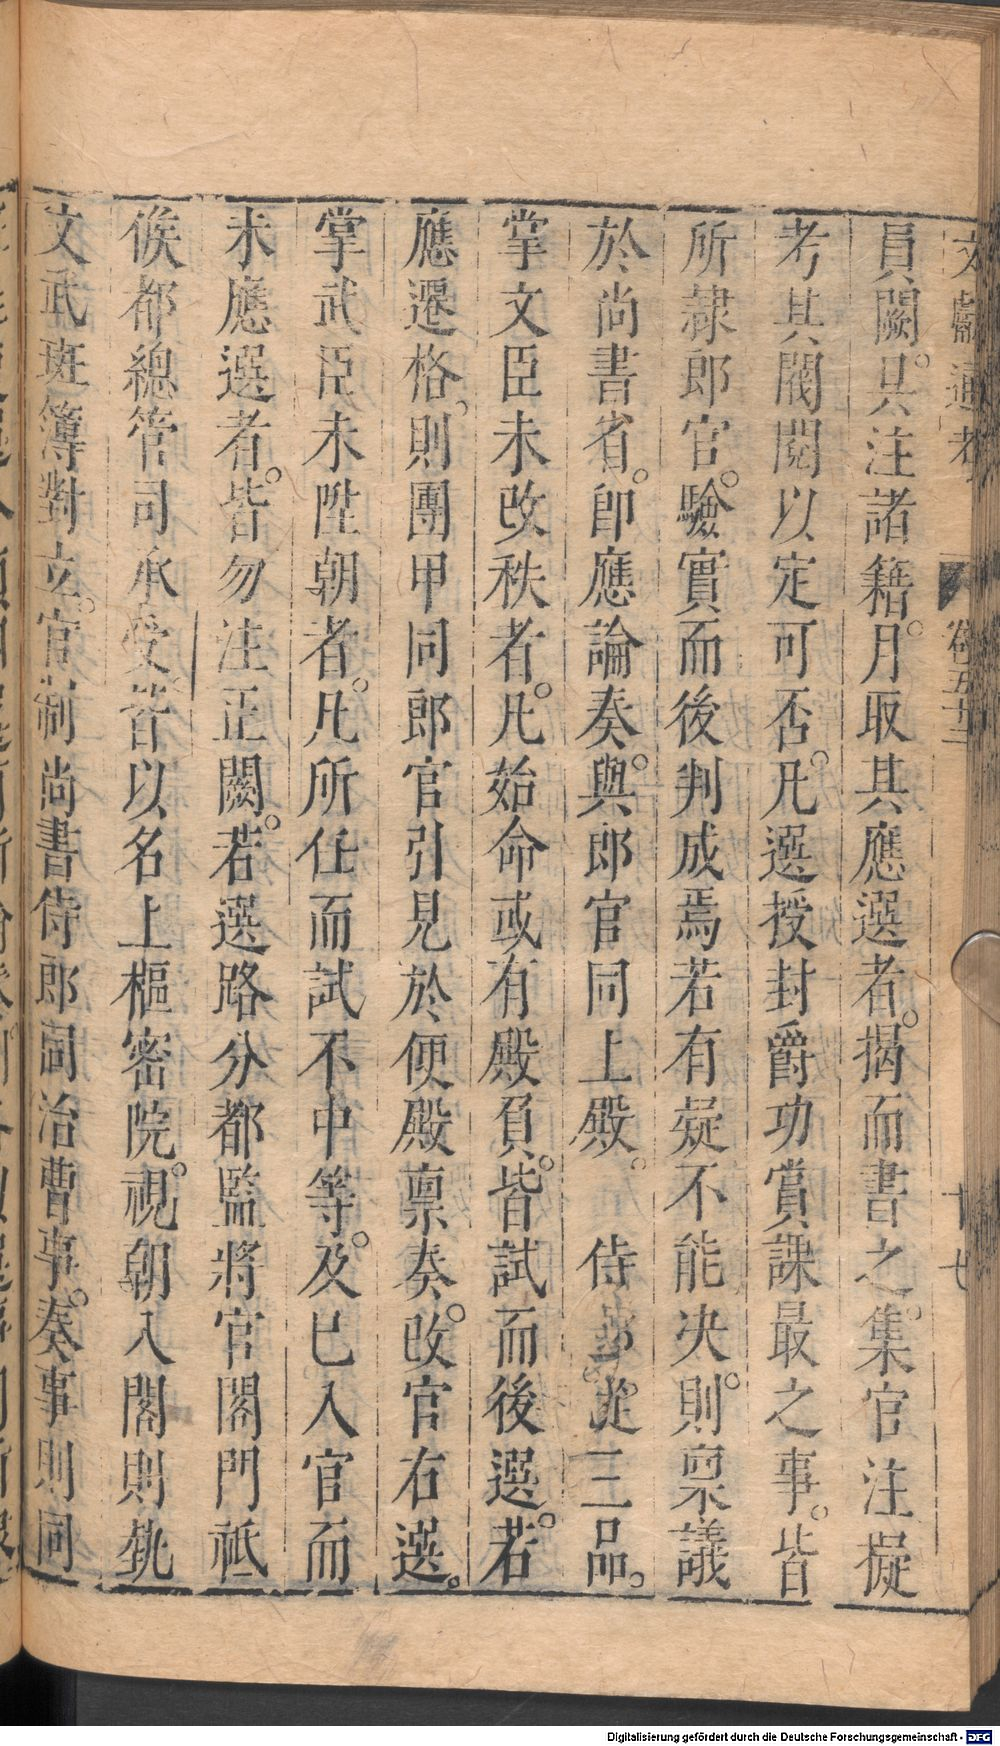 文獻通考 卷五十二 十七
員闕。具注諸籍。月取其應選者。揭而書之。集官注擬
考其閥閱以定可否。凡選授封爵功賞課最之事。皆
所隷郎官。驗實而後判成焉若有疑不能决。則稟議
於尚書省。卽應論奏。與郎官同上殿。 侍郎。從三品。
掌文臣未改秩者。凡始命或有殿負。皆試而後選。若
應遷格。則團甲同郎官引見於便殿稟奏。改官右選。
掌武臣未陞朝者。凡所任而試不中等。及已入官而
未應選者。皆勿注正闕。若選路分都監將官閤門祗
候都總管司承受。皆以名上樞密院。視朝入閤則執
文武班簿對立。官制尚書侍郎同治曹事。奏事則同
Digitalisierung gefördert durch die Deutsche Forschungsgemeinschaft - DFG